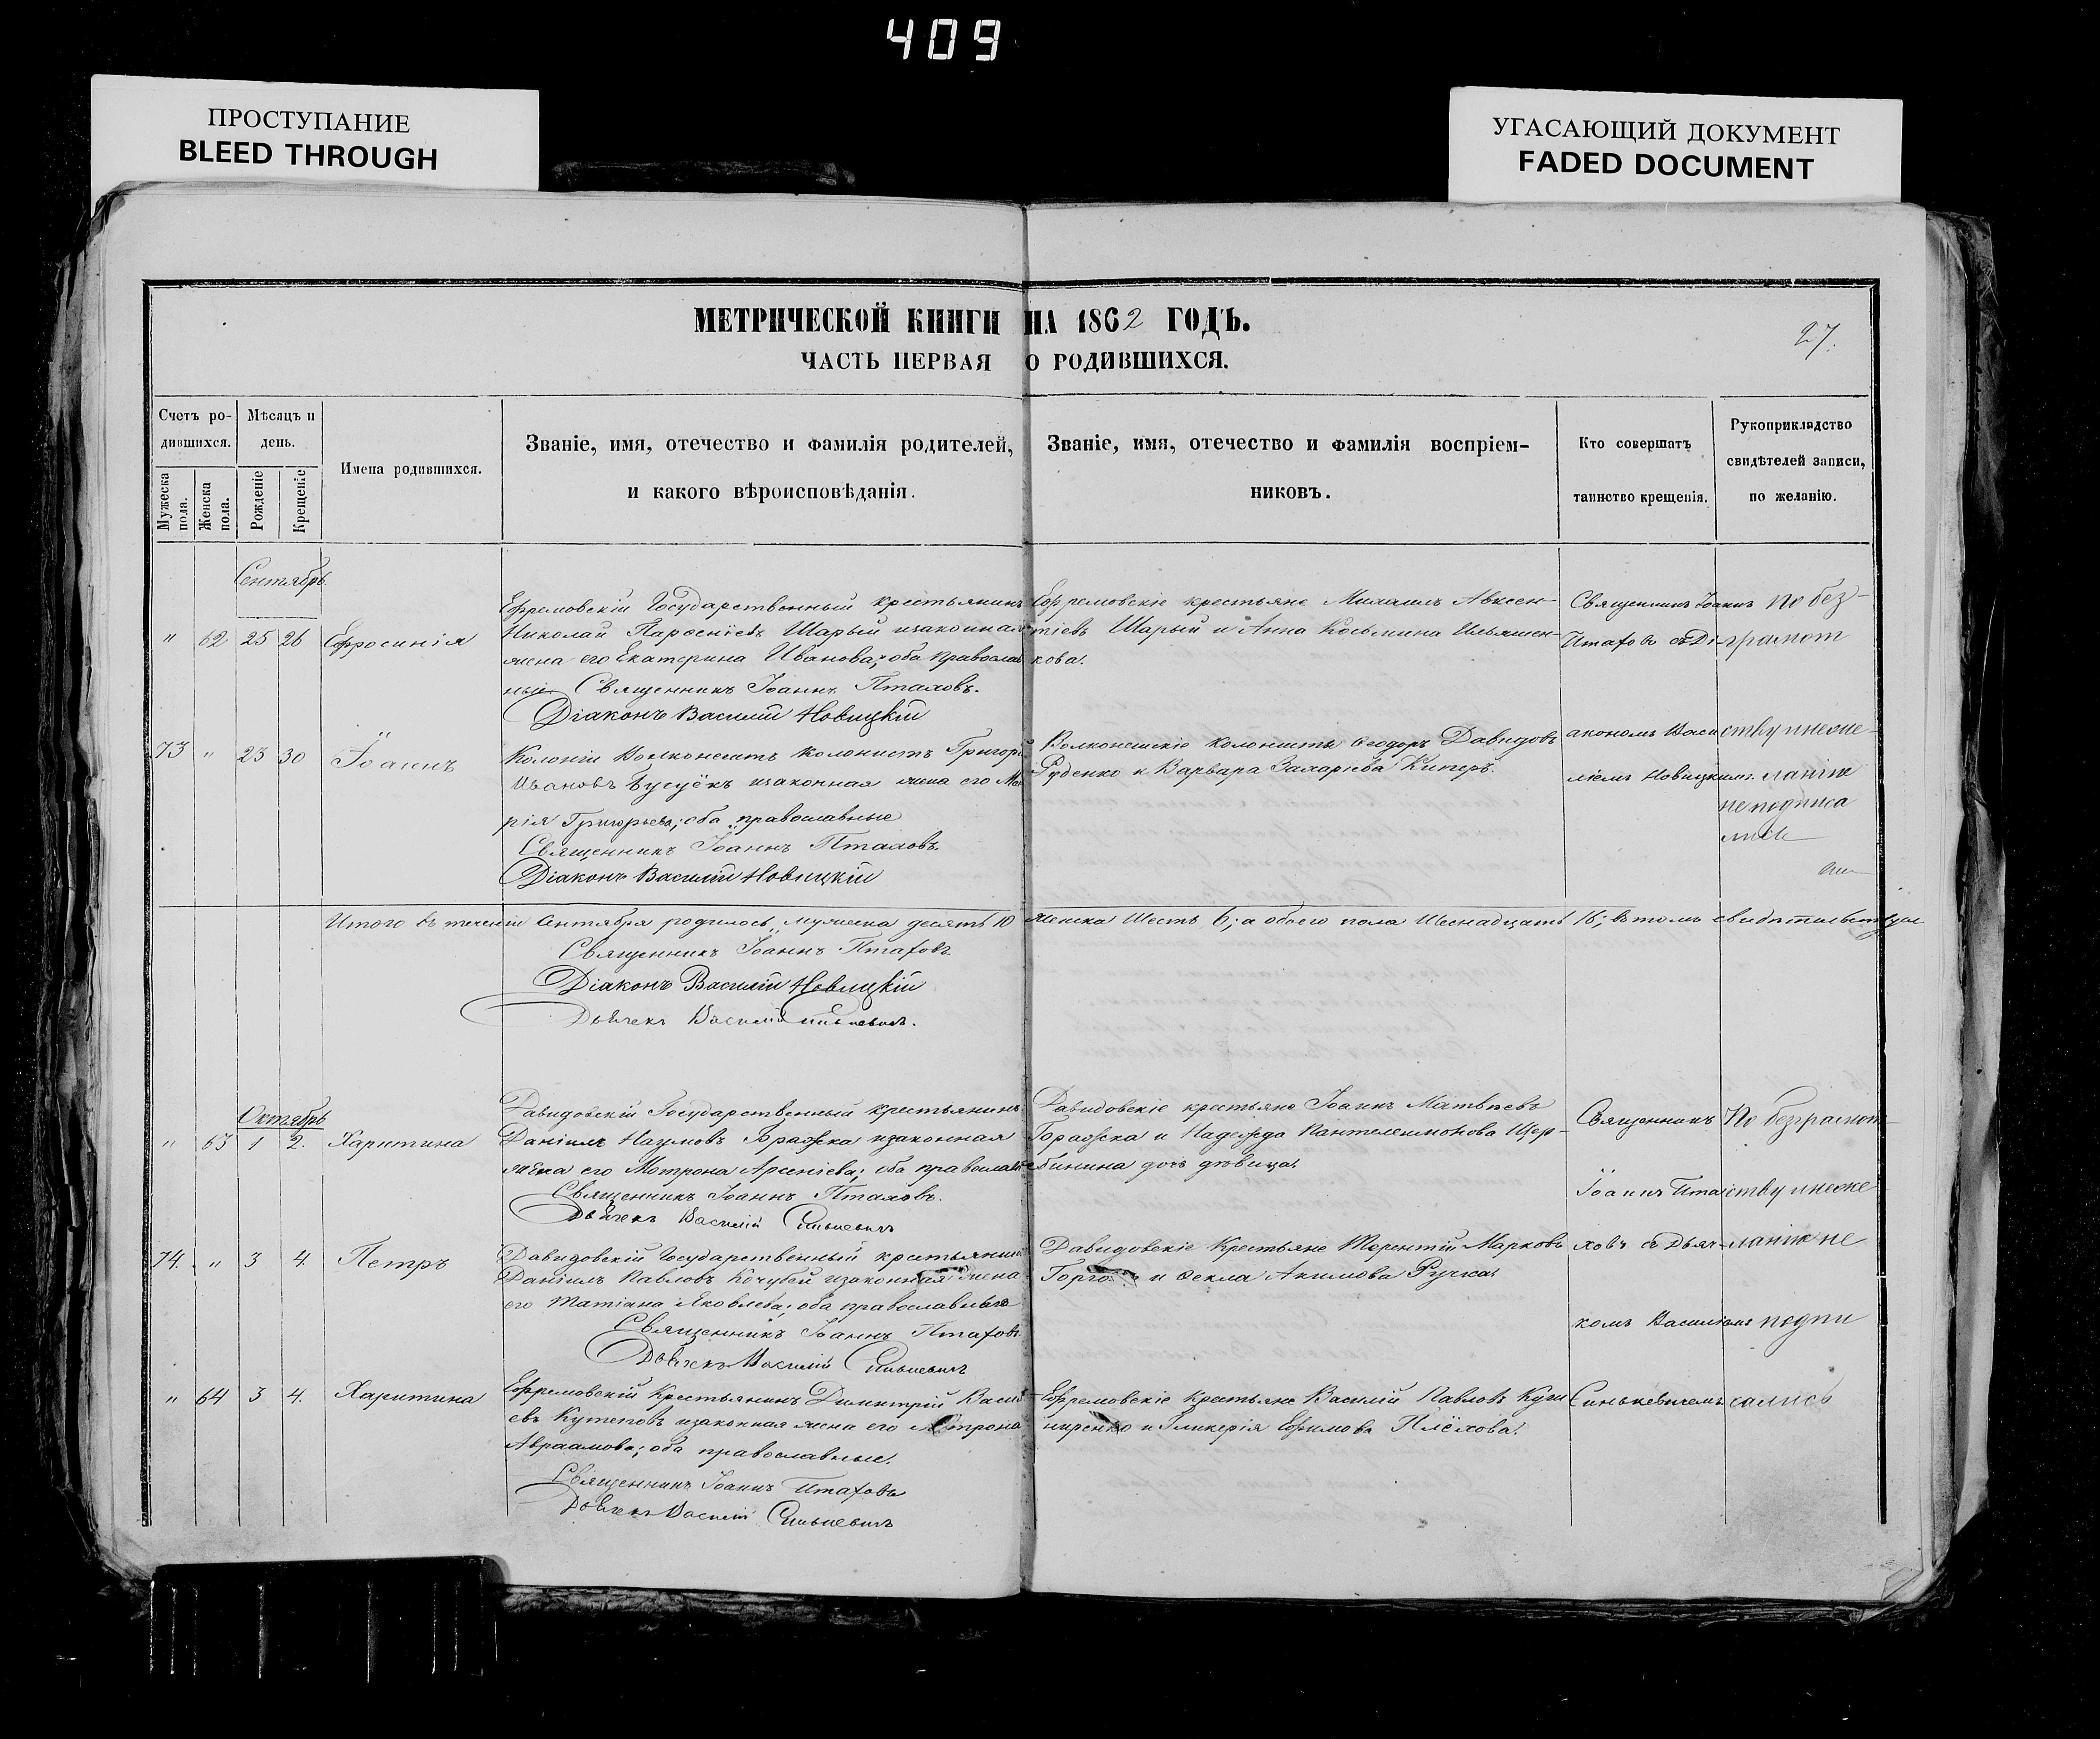 409
ПРОСТУПАНИЕ
BLEED THROUGH
УГАСАЮЩИЙ ДОКУМЕНТ
FADED DOCUMENT
МЕТРИЧЕСКОЙ КНИГИ НА 1862 ГОДЪ.
27.
ЧАСТЬ ПЕРВАЯ О РОДИВШИХСЯ.
Счетъ ро-
дившихся.
Мужеска пола.
Женска пола.
Мѣсяцъ и
день.
Рожденіе
Крещеніе
Имена родившихся.
Званіе, имя, отечество и фамилія родителей,
и какого вѣроисповѣданія.
Званіе, имя, отечество и фамилія воспріем-
никовъ.
Кто совершатъ
таинство крещенія.
Рукоприкладство
свидѣтелей записи,
по желанію.
Сентябрь
" 62 25 26 Ефросинія
Ефремовскій Государственный крестьянинъ
Николай Парѳеніевъ Шарый изаконная
жена его Екатерина Иванова; оба православ
ные Священникъ Іоаннъ Птаховъ.
Діаконъ Василій Новицкій
Ефремовскіе крестьяне Михаилъ Авксен-
тіевъ Шарый и Анна Косьмина Ильяшен-
кова.
Священникъ Іоаннъ
Птаховъ съ Ді-
акономъ Васи
ліемъ Новицкимъ.
По без-
грамот
ству инеже-
ланію
неподписа
лись
73 " 23 30 Іоаннъ
Колоніи колонистъ Григорій
Ивановъ изаконная жена его Ма
рія Григорьева; оба православные
Священникъ Іоаннъ Птаховъ.
Діаконъ Василій Новицкій
колонисты Ѳеодоръ Давидовъ
Руденко и Варвара Захаріева Киперъ.
Итого въ теченіи Сентября родилось, мужеска десять 10 женска шесть 6; а обоего пола шеснадцать 16; въ томъ свидѣтельствуемъ
Священникъ Іоаннъ Птаховъ
Діаконъ Василій Новицкій
Дьячекъ Василій Синькевичъ.
Октябрь
" 63 1 2. Харитина
Давидовскій Государственный крестьянинъ
Даніилъ Наумовъ Горажска изаконная
жена его Мотрона Арсеніева; оба православные
Священникъ Іоаннъ Птаховъ.
Дьячекъ Василій Синькевичъ
Давидовскіе крестьяне Іоаннъ Матвѣевъ
Горажска и Надежда Пантелеимонова Щер-
бинина дочь дѣвица.
Священникъ
Іоаннъ Пта
ховъ съ Дьяч-
комъ Василіемъ
Синькевичемъ
По безграмот-
ству инеже-
ланію не
подпи
сались
74. " 3 4. Петръ
Давидовскій Государственный крестьянинъ
Даніилъ Павловъ Кочубей изаконная жена
его Татіана Яковлева; оба православные
Священникъ Іоаннъ Птаховъ.
Дьячекъ Василій Синькевичъ
Давидовскіе Крестьяне Терентій Марковъ
и Ѳекла Акимова Ручка.
" 64 3 4. Харитина
Ефремовскій Крестьянинъ Димитрій Василі
евъ Кутеповъ изаконная жена его Мотрона
Авраамова; оба православные.
Священникъ Іоаннъ Птаховъ
Дьячекъ Василій Синькевичъ
Ефремовскіе Крестьяне Василій Павловъ Куш
ниренко и Гликерія Ефимова Плёхова.